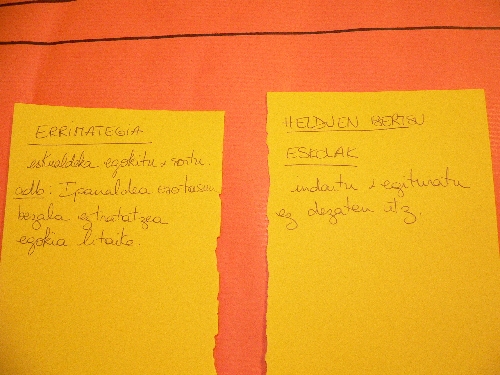 ERRIMATEGIA
eskualdeka egokitu + sortu.
adb. Iparraldea
bezala egitea
egokia litzake.
HELDUEN BERTSO
ESKOLAK
indartu + egituratu
ez dezaten itz.